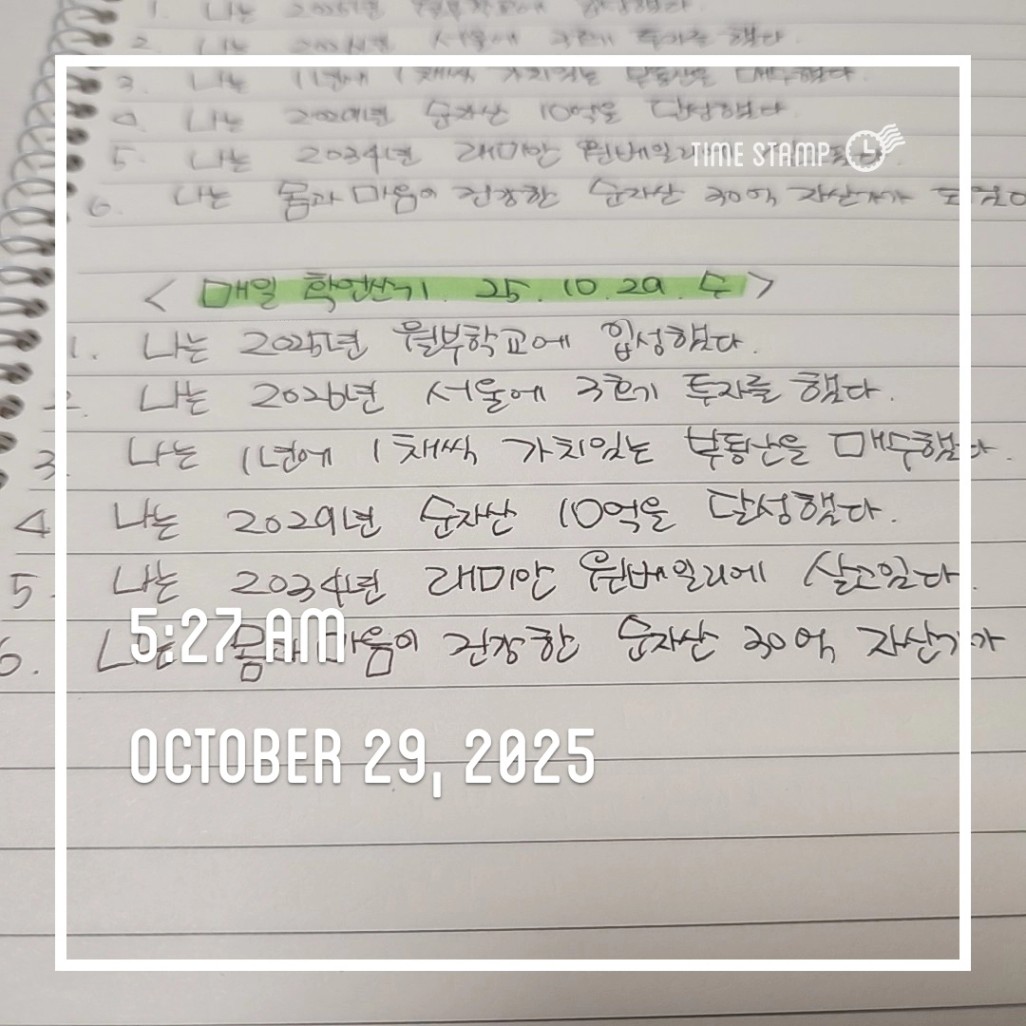 1. 나는 2025년 월부학교에 입성했다.
2. 나는 2026년 서울에 3호기 투자를 했다.
3. 나는 1년에 1채씩 가치있는 부동산을 매수했다.
4. 나는 2029년 순자산 10억을 달성했다.
5. 나는 2034년 래미안 원베일리
TIME STAMP
6. 나는 몸과 마음이 건강한 순자산 30억 자산가가 되었다
< 매일 확언쓰기. 25. 10. 29. 수 >
1. 나는 2025년 월부학교에 입성했다.
2. 나는 2026년 서울에 3호기 투자를 했다.
3. 나는 1년에 1채씩 가치있는 부동산을 매수했다.
4 나는 2029년 순자산 10억을 달성했다.
5. 나는 2034년 래미안 원베일리에 살고있다.
6. 나는 몸과 마음이 건강한 순자산 30억 자산가가
5:27 AM
OCTOBER 29, 2025